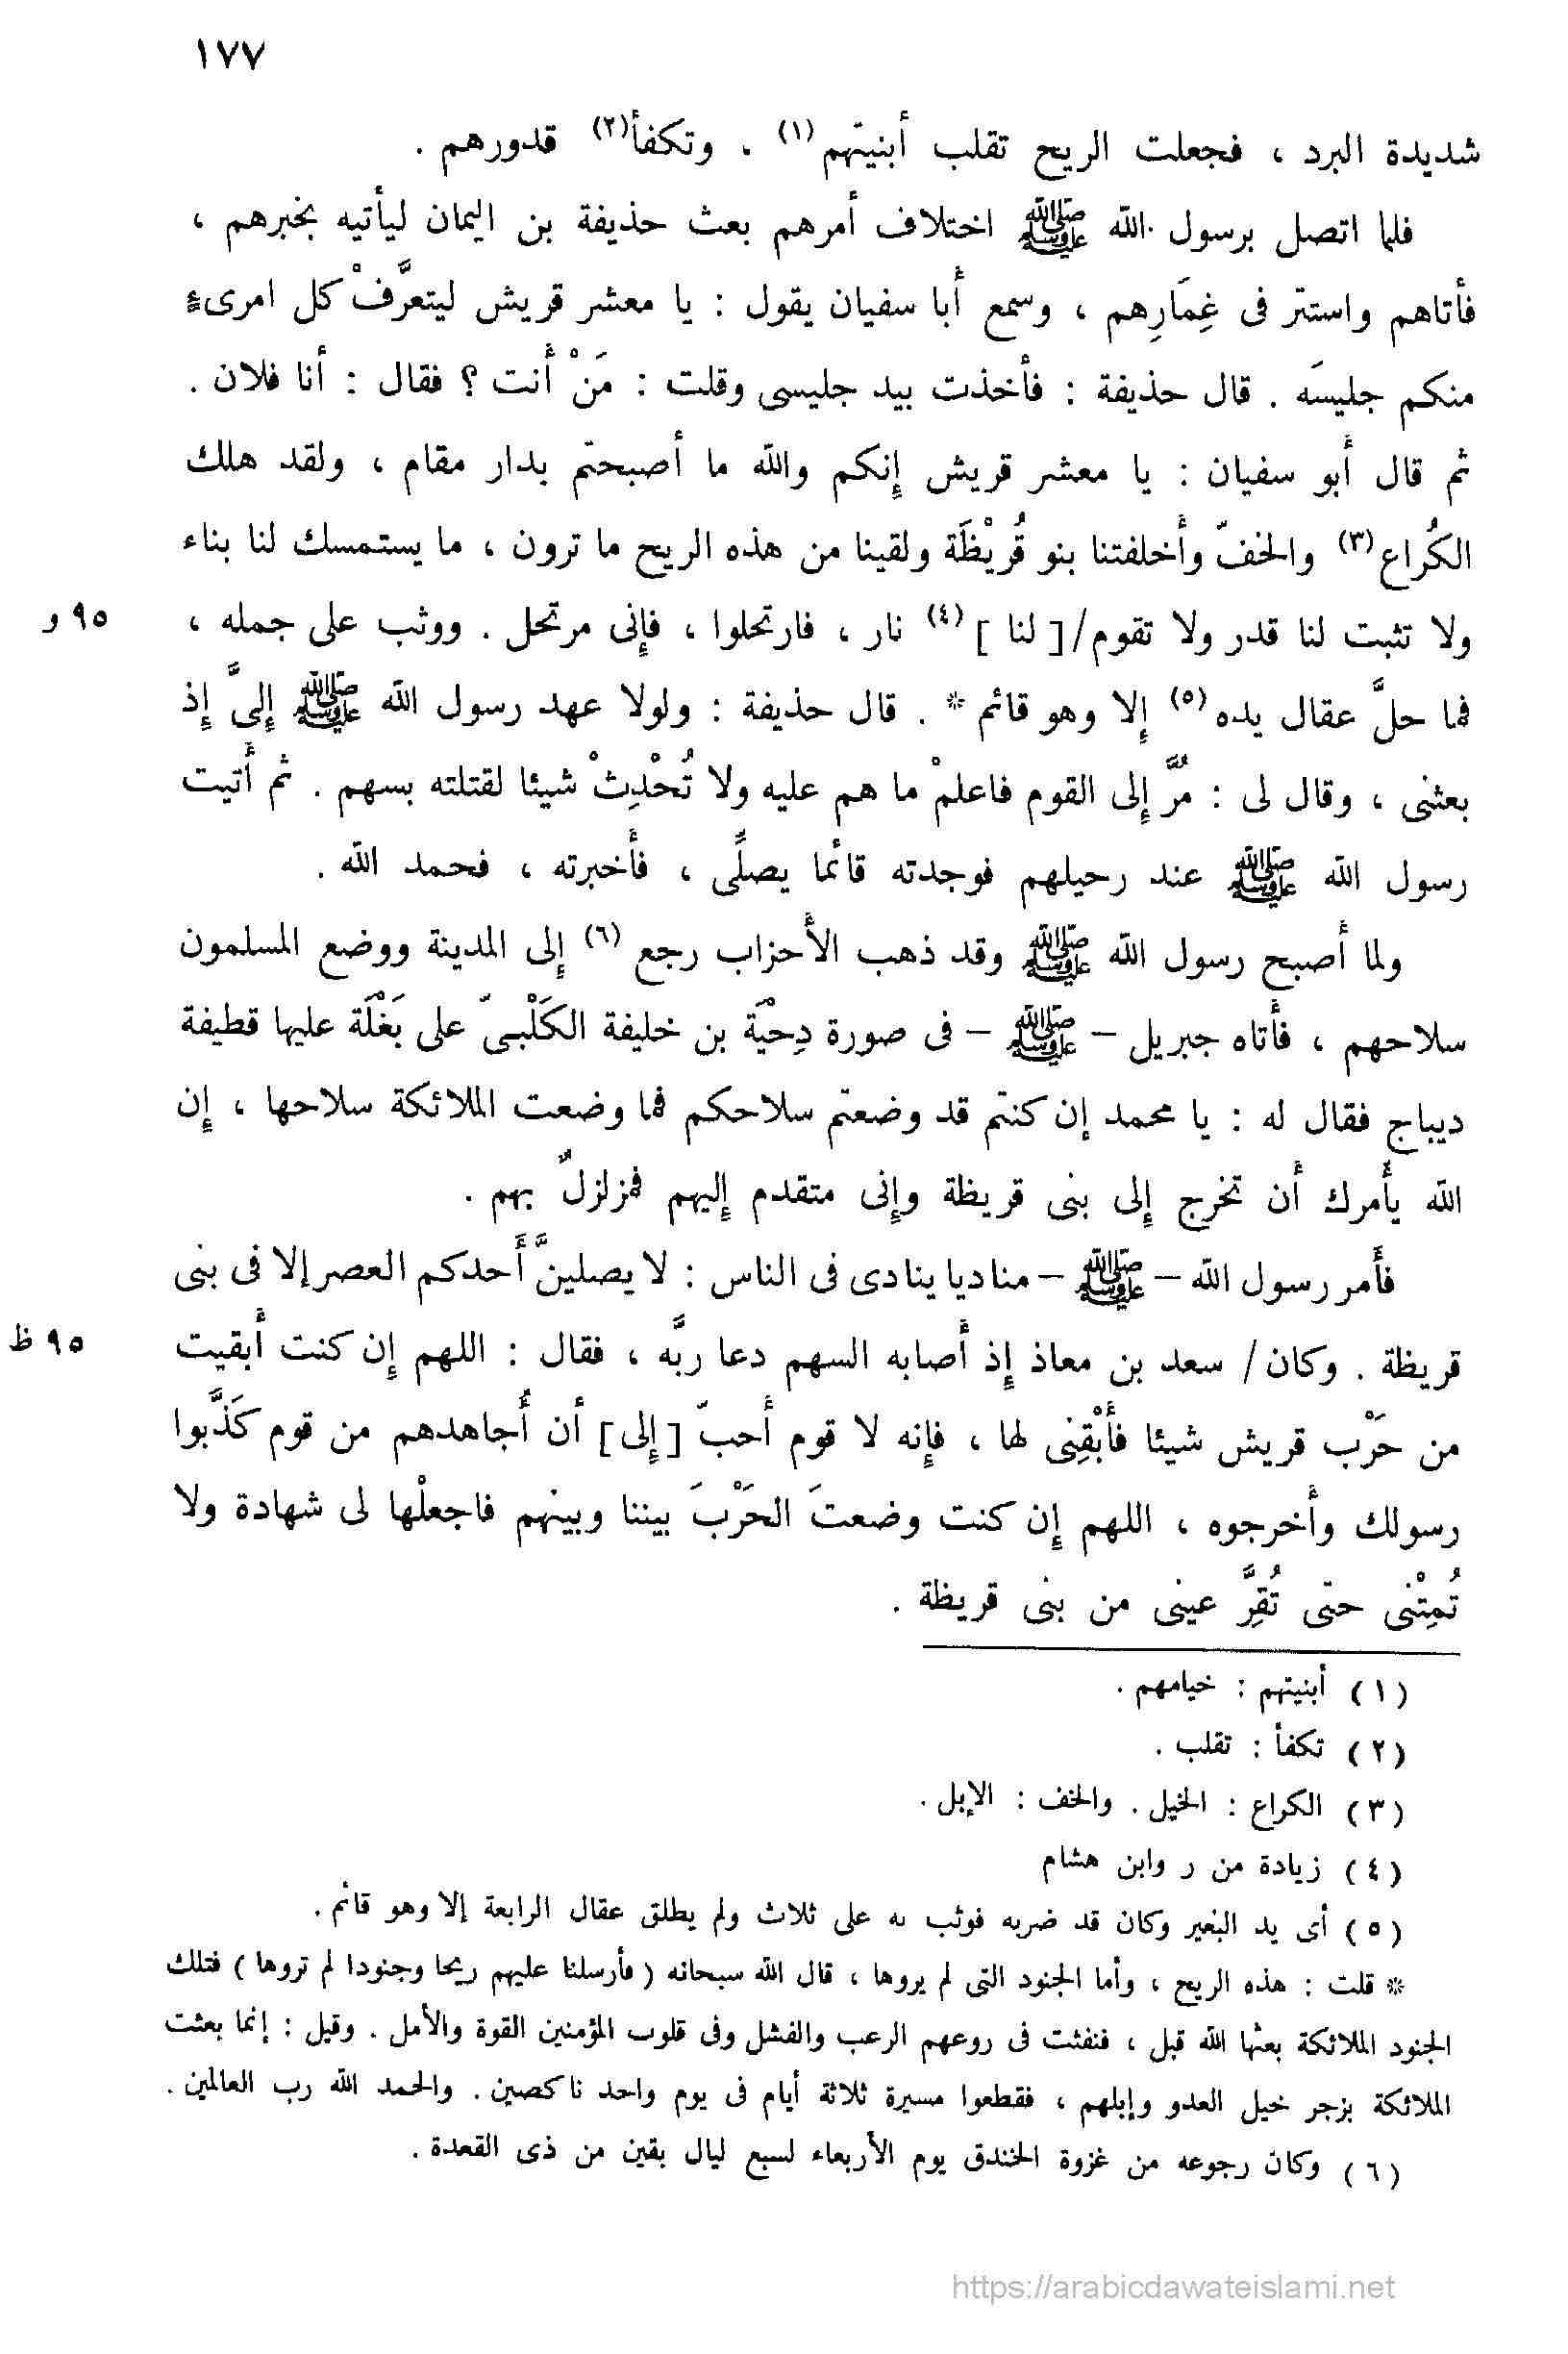 ١٧٧
شديدة البرد ، فجعلت الريح تقلب أبنيتهم(١) ، وتكفأ(٢) قدورهم .
فلما اتصل برسول الله ﷺ اختلاف أمرهم بعث حذيفة بن اليمان ليأتيه بخبرهم ،
فأتاهم واستتر فى غِمَارِهم ، وسمع أبا سفيان يقول : يا معشر قريش ليتعرَّفْ كل امرىءٍ
منكم جليسَه . قال حذيفة : فأخذت بيد جليسى وقلت : مَنْ أنت ؟ فقال : أنا فلان .
ثم قال أبو سفيان : يا معشر قريش إنكم والله ما أصبحتم بدار مقام ، ولقد هلك
الكُراع(٣) والخفّ وأخلفتنا بنو قُريْظَة ولقينا من هذه الريح ما ترون ، ما يستمسك لنا بناء
ولا تثبت لنا قدر ولا تقوم/[ لنا ](٤) نار ، فارتحلوا ، فإنى مرتحل . ووثب على جمله ،
٩٥ و
فما حلَّ عقال يده(٥) إلا وهو قائم * . قال حذيفة : ولولا عهد رسول الله ﷺ إلىَّ إذ
بعثنى ، وقال لى : مُرَّ إلى القوم فاعلمْ ما هم عليه ولا تُحْدِثْ شيئا لقتلته بسهم . ثم أتيت
رسول الله ﷺ عند رحيلهم فوجدته قائما يصلِّى ، فأخبرته ، فحمد الله .
ولما أصبح رسول الله ﷺ وقد ذهب الأحزاب رجع (٦) إلى المدينة ووضع المسلمون
سلاحهم ، فأتاه جبريل – ﷺ – فى صورة دِحْيَة بن خليفة الكَلْبىّ على بَغْلَة عليها قطيفة
ديباج فقال له : يا محمد إن كنتم قد وضعتم سلاحكم فما وضعت الملائكة سلاحها ، إن
الله يأمرك أن تخرج إلى بنى قريظة وإنى متقدم إليهم فمزلزلٌ بهم .
فأمر رسول الله – ﷺ – مناديا ينادى فى الناس : لا يصلينَّ أحدكم العصر إلا فى بنى
قريظة . وكان/ سعد بن معاذ إذ أصابه السهم دعا ربَّه ، فقال : اللهم إن كنت أبقيت
٩٥ ظ
من حَرْب قريش شيئا فأَبْقِنِى لها ، فإنه لا قوم أحبّ [إلى] أن أُجاهدهم من قوم كَذَّبوا
رسولك وأخرجوه ، اللهم إن كنت وضعتَ الحَرْبَ بيننا وبينهم فاجعلْها لى شهادة ولا
تُمِتْنى حتى تُقِرَّ عينى من بنى قريظة .
(١) أبنيتهم : خيامهم .
(٢) تكفأ : تقلب .
(٣) الكراع : الخيل . والخف : الإبل .
(٤) زيادة من ر وابن هشام
(٥) أى يد البعير وكان قد ضربه فوثب به على ثلاث ولم يطلق عقال الرابعة إلا وهو قائم .
* قلت : هذه الريح ، وأما الجنود التى لم يروها ، قال الله سبحانه ( فأرسلنا عليهم ريحا وجنودا لم تروها ) فتلك
الجنود الملائكة بعثها الله قبل ، فنفثت فى روعهم الرعب والفشل وفى قلوب المؤمنين القوة والأمل . وقيل : إنما بعثت
الملائكة بزجر خيل العدو وإبلهم ، فقطعوا مسيرة ثلاثة أيام فى يوم واحد ناكصين . والحمد الله رب العالمين .
(٦) وكان رجوعه من غزوة الخندق يوم الأربعاء لسبع ليال بقين من ذى القعدة .
https://arabicdawateislami.net